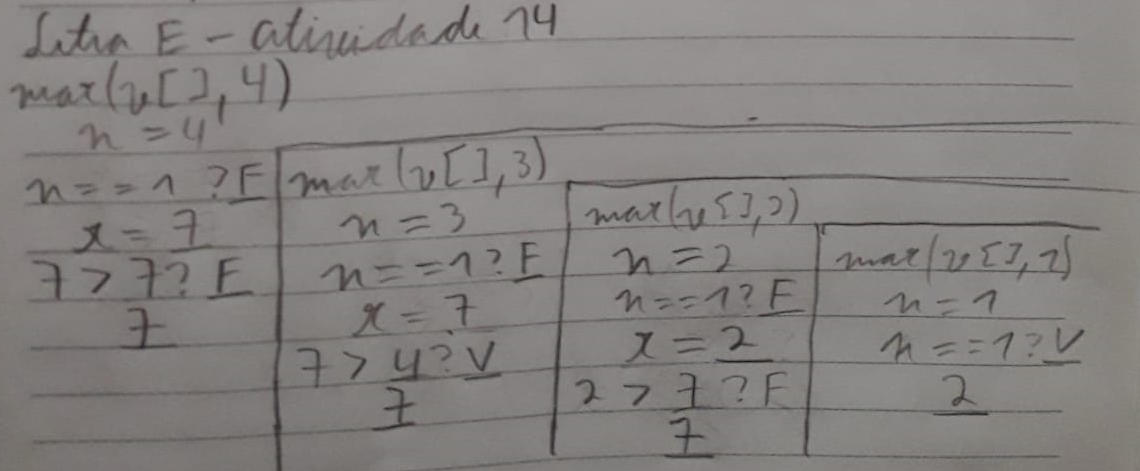 Letra E - atividade 14
max(v[], 4)
n = 4
n == 1 ? F
x = 7
7 > 7 ? F
7
max(v[], 3)
n = 3
n == 1 ? F
x = 7
7 > 4 ? V
7
max(v[], 2)
n = 2
n == 1 ? F
x = 2
2 > 7 ? F
7
max(v[], 1)
n = 1
n == 1 ? V
2